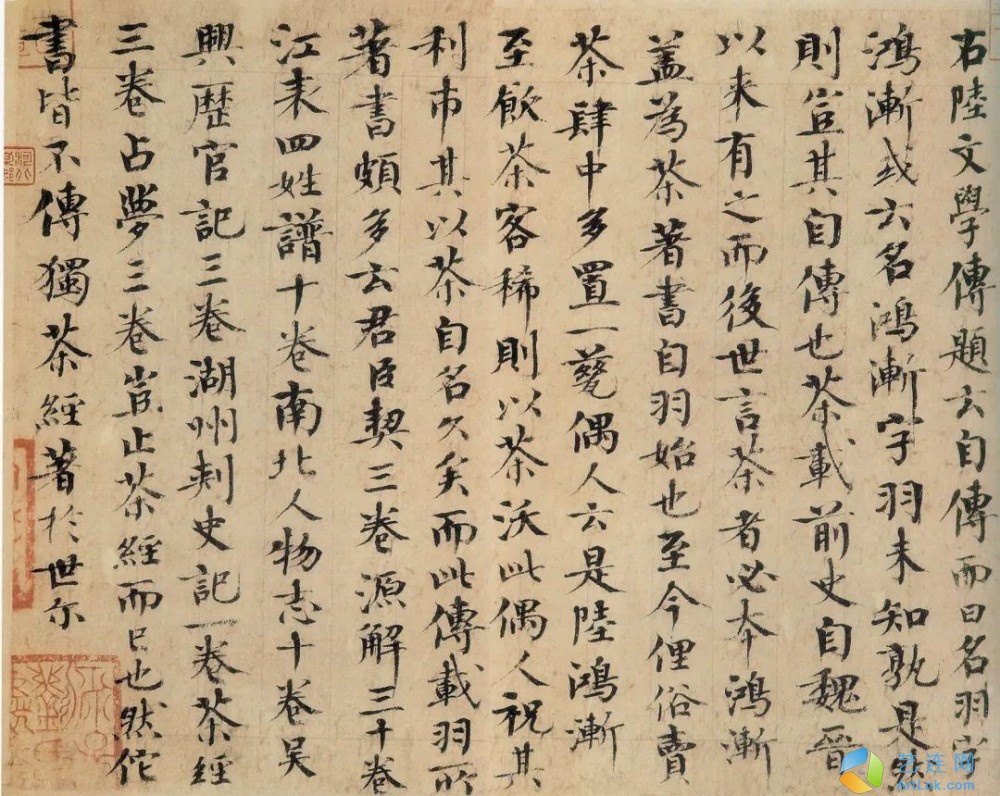 右陸文學傳題云自傳而曰名羽字
鴻漸或云名鴻漸字羽未知孰是然
則豈其自傳也茶載前史自魏晉
以来有之而後世言茶者必本鴻漸
盖為茶著書自羽始也至今俚俗賣
茶肆中多置一甆偶人云是陸鴻漸
至飲茶客稀則以茶沃此偶人祝其
利市其以茶自名久矣而此傳載羽所
著書頗多云君臣契三卷源解三十卷
江表四姓譜十卷南北人物志十卷吴
興歴官記三卷湖州刺史記一卷茶經
三卷占夢三卷豈止茶經而已也然佗
書皆不傳獨茶經著於世尔